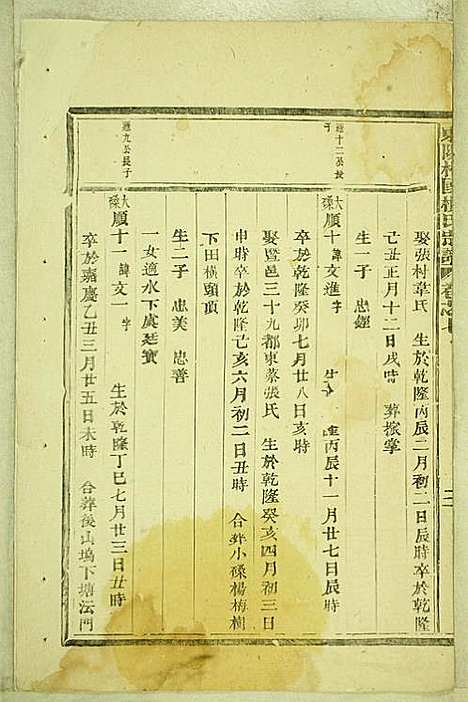 娶張村韋氏 生於乾隆丙辰二月初二日辰時卒於乾隆
己丑正月十二日戌時 葬
生一子 忠
大𥕢順十 諱文進 字 丙辰十一月廿七日辰時
卒於乾隆癸卯七月廿八日亥時
娶暨邑三十九都東蔡張氏 生於乾隆癸亥四月初三日
申時卒於乾隆己亥六月初二日丑時 合葬小𥕢楊梅樹
下田橫頭頂
生二子 忠美 忠善
一女適水下虞廷寶
大𥕢順十一 諱文一 字 生於乾隆丁巳七月廿三日丑時
卒於嘉慶乙丑三月廿五日未時 合葬後山塢下塘沄門
氏宗譜
二